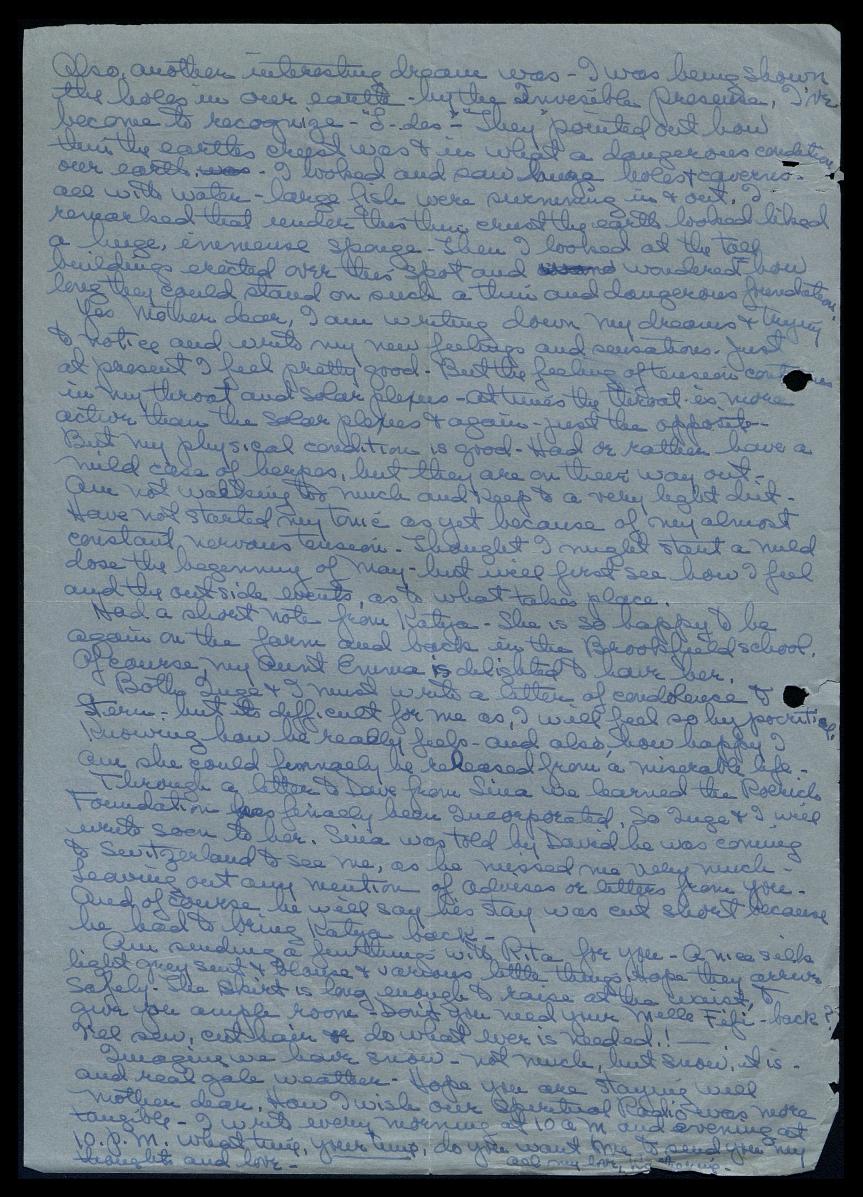 Also, another interesting dream was - I was being shown
the holes in our earth - by the Invesible presense, I've
become to recognize - They pointed out how
thin the earths crust was & in what a dangerous condition
our earth was - I looked and saw huge holes & caverns -
all with water - large fish were swimming in & out. I
remarked that under this thin crust the earth looked liked
a huge, immense sponge - then I looked at the tall
buildings erected over this spot and wondered how
long they could stand on such a thin and dangerous foundation.
Yes Mother dear, I am writing down my dreams & trying
to notice and write my new feelings and sensations. Just
at present I feel pretty good - But the feeling of tension continues
in my throat and solar plexus - at times the throat is more
active than the solar plexus & again - just the opposite -
But my physical condition is good - Had or rather have a
mild case of herpes, but they are on their way out -
Am not walking too much and keep to a very light diet -
Have not started my tonic as yet because of my almost
constant nervous tension - Thought I might start a mild
dose the beginning of May - but will first see how I feel
and the outside events, as to what takes place.
Had a short note from Katya - She is so happy to be
again on the farm and back in the Brookfield school.
Of course my Aunt Emma is delighted to have her.
Both Inge & I must write a letter of condolence to
Stern - but its difficult for me as, I will feel so hypocritical,
knowing how he really feels - and also, how happy I
am she could finnaely be released from a miserable life -
Through a letter to Dave from Sina we learned the Roerich
Foundation has finaely been Incorporated. So Inge & I will
write soon to her. Sina was told by David he was coming
to Switzerland to see me, as he missed me very much -
Leaving out any mention of advises or letters from you -
And of course he will say his stay was cut short because
he had to bring Katya back -
Am sending a few things with Rita for you - A nice silk
light grey suit & blouse & various little things. Hope they arrive
safely. The skirt is long enough to raise at the waist, to
give you ample room - Don't you need your Melle Fifi - back?
I'll sew, cut hair or do what ever is needed!! -
Imagine we have snow - not much, but snow, it is -
and real gale weather - Hope you are staying well
Mother dear. How I wish our Spiritual Radio was more
tangible - I write every morning at 10 a.m and evening at
10. p.m. what time, your time, do you want me to send you my
thoughts and love -
all my love,